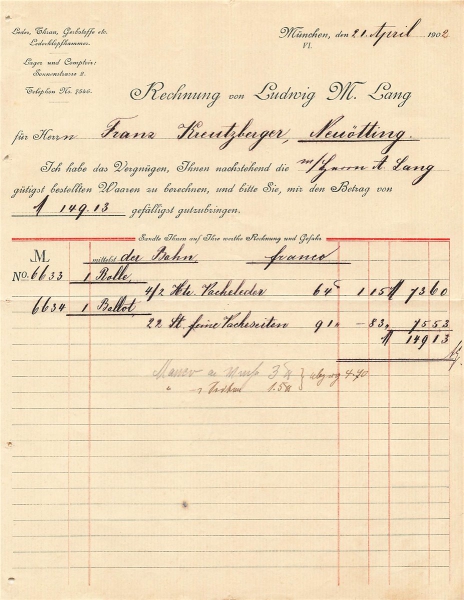 Leder, Thran, Gerbstoffe etc.
Lederklopfhammer.
Lager und Comptoir:
Sonnenstrasse 2.
Telephon No. 7546.
München, den 21 April 1902
VI.
Rechnung von Ludwig M. Lang
für Herrn Franz Kreutzberger, Neuötting.
Ich habe das Vergnügen, Ihnen nachstehend die m/Herrn A Lang
gütigst bestellten Waaren zu berechnen, und bitte Sie, mir den Betrag von
M 149.13 gefälligst gutzubringen.
Sandte Ihnen auf Ihre werthe Rechnung und Gefahr
.M. mittelst der Bahn franco
No. 6633 1 Rolle,
4/2 Hte. Vacheleder 64 115 M 73 60
6634 1 Ballot,
22 St. feine Vacheseiten 91 83 75 53
M 149 13